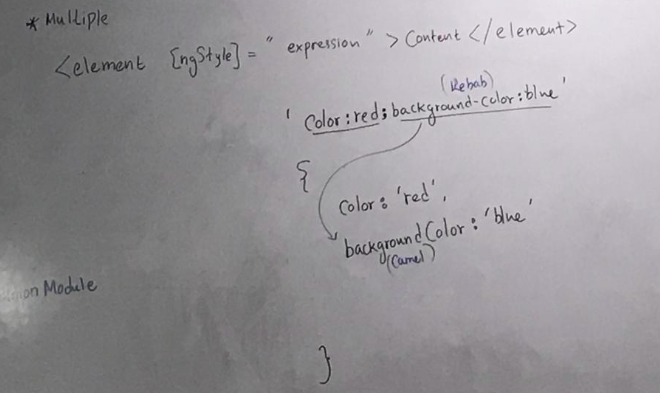 * Multiple
<element [ngStyle] = " expression " > Content </element>
(Kebab)
' Color : red ; background-color : blue '
{
Color : 'red' ,
backgroundColor : 'blue'
(Camel)
Module
}